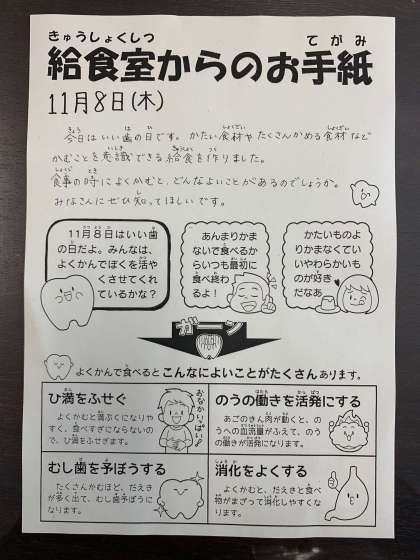 きゅうしょくしつ てがみ
給食室からのお手紙
11月8日(木)
今日はいい歯の日です。かたい食材やたくさんかめる食材など
かむことを意識できる給食を作りました。
食事の時によくかむと、どんなよいことがあるのでしょうか。
みなさんにぜひ知ってほしいです。
11月8日はいい歯
の日だよ。みんなは、
よくかんでぼくを活や
くさせてくれ
ているかな?
あんまりかま
ないで食べるか
らいつも最初に
食べ終わ
るよ!
かたいものよ
りかまなくてい
いやわらかいも
のが好き
だなあ
ガーン
よくかんで食べるとこんなによいことがたくさんあります。
ひ満をふせぐ
よくかむと満ぷくになりや
すく、食べすぎにならないの
で、ひ満をふせぎます。
おなかいっぱい!
のうの働きを活発にする
あごのきん肉が動くと、の
うへの血流量がふえて、のう
の働きが活発になります。
むし歯を予ぼうする
たくさんかむほど、だえき
が多く出て、むし歯予ぼうに
なります。
消化をよくする
よくかむと、だえきと食べ
物がまざって消化しやすくな
ります。